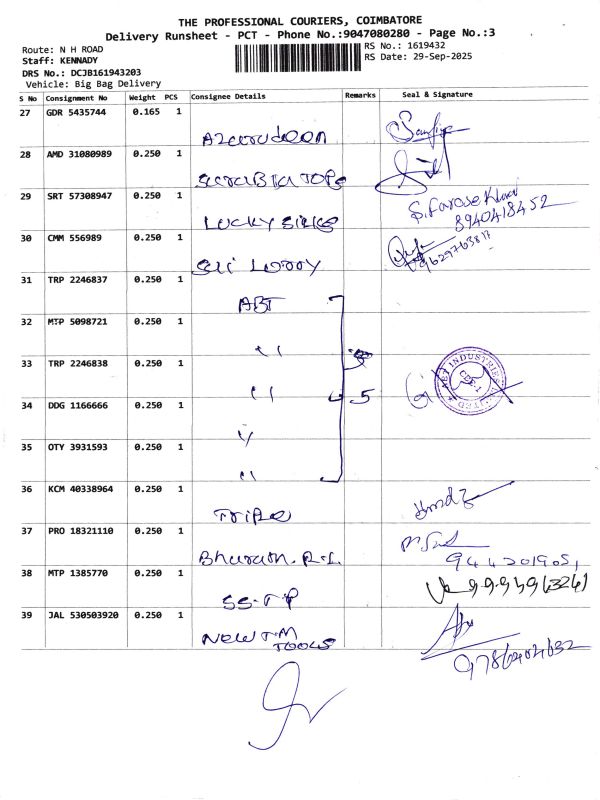 THE PROFESSIONAL COURIERS, COIMBATORE
Delivery Runsheet - PCT - Phone No.:9047080280 - Page No.:3
Route: N H ROAD
RS No.: 1619432
Staff: KENNADY
RS Date: 29-Sep-2025
DRS No.: DCJB161943203
Vehicle: Big Bag Delivery
S No Consignment No Weight PCS Consignee Details Remarks Seal & Signature
27 GDR 5435744 0.165 1
Azarudeen
28 AMD 31080989 0.250 1
29 SRT 57308947 0.250 1
LUCKY SILKS
S. Farose Khan
8940418452
30 CMM 556989 0.250 1
Sri Lorry
31 TRP 2246837 0.250 1
ABT
32 MTP 5098721 0.250 1
"
33 TRP 2246838 0.250 1
" 5
ABT INDUSTRIES LIMITED
34 DDG 1166666 0.250 1
"
35 OTY 3931593 0.250 1
"
36 KCM 40338964 0.250 1
Triple
37 PRO 18321110 0.250 1
Bharath. R.L
9442019051
38 MTP 1385770 0.250 1
SS.T.P
39 JAL 530503920 0.250 1
NEW T.M
TOOLS